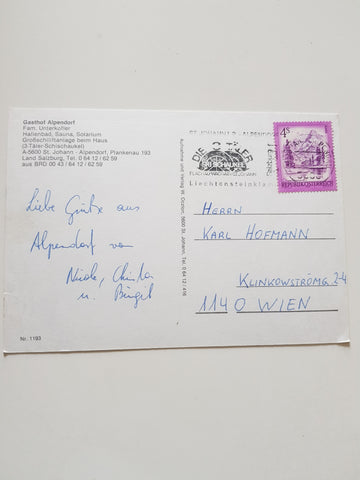 Gasthof Alpendorf
Fam. Unterkofler
Hallenbad, Sauna, Solarium
Großschiffanlage beim Haus
(3-Täler-Schischaukel)
A-5600 St. Johann - Alpendorf, Plankenau 193
Land Salzburg, Tel. 0 64 12 / 62 59
aus BRD 00 43 / 64 12 / 62 59
Liebe Grüße aus
Alpendorf von
Nicole, Christa
u. Birgit
Nr. 1193
Aufnahme und Verlag W. Gordon, 5600 St. Johann, Tel. 0 64 12 / 416
ST. JOHANN I. P. - ALPENDORF
DIE 3 TÄLER
SCHISCHAUKEL
Liechtensteinklamm
4 S
REPUBLIK ÖSTERREICH
HERRN
KARL HOFMANN
KLINKOWSTRÖMG. 2-4
1140 WIEN